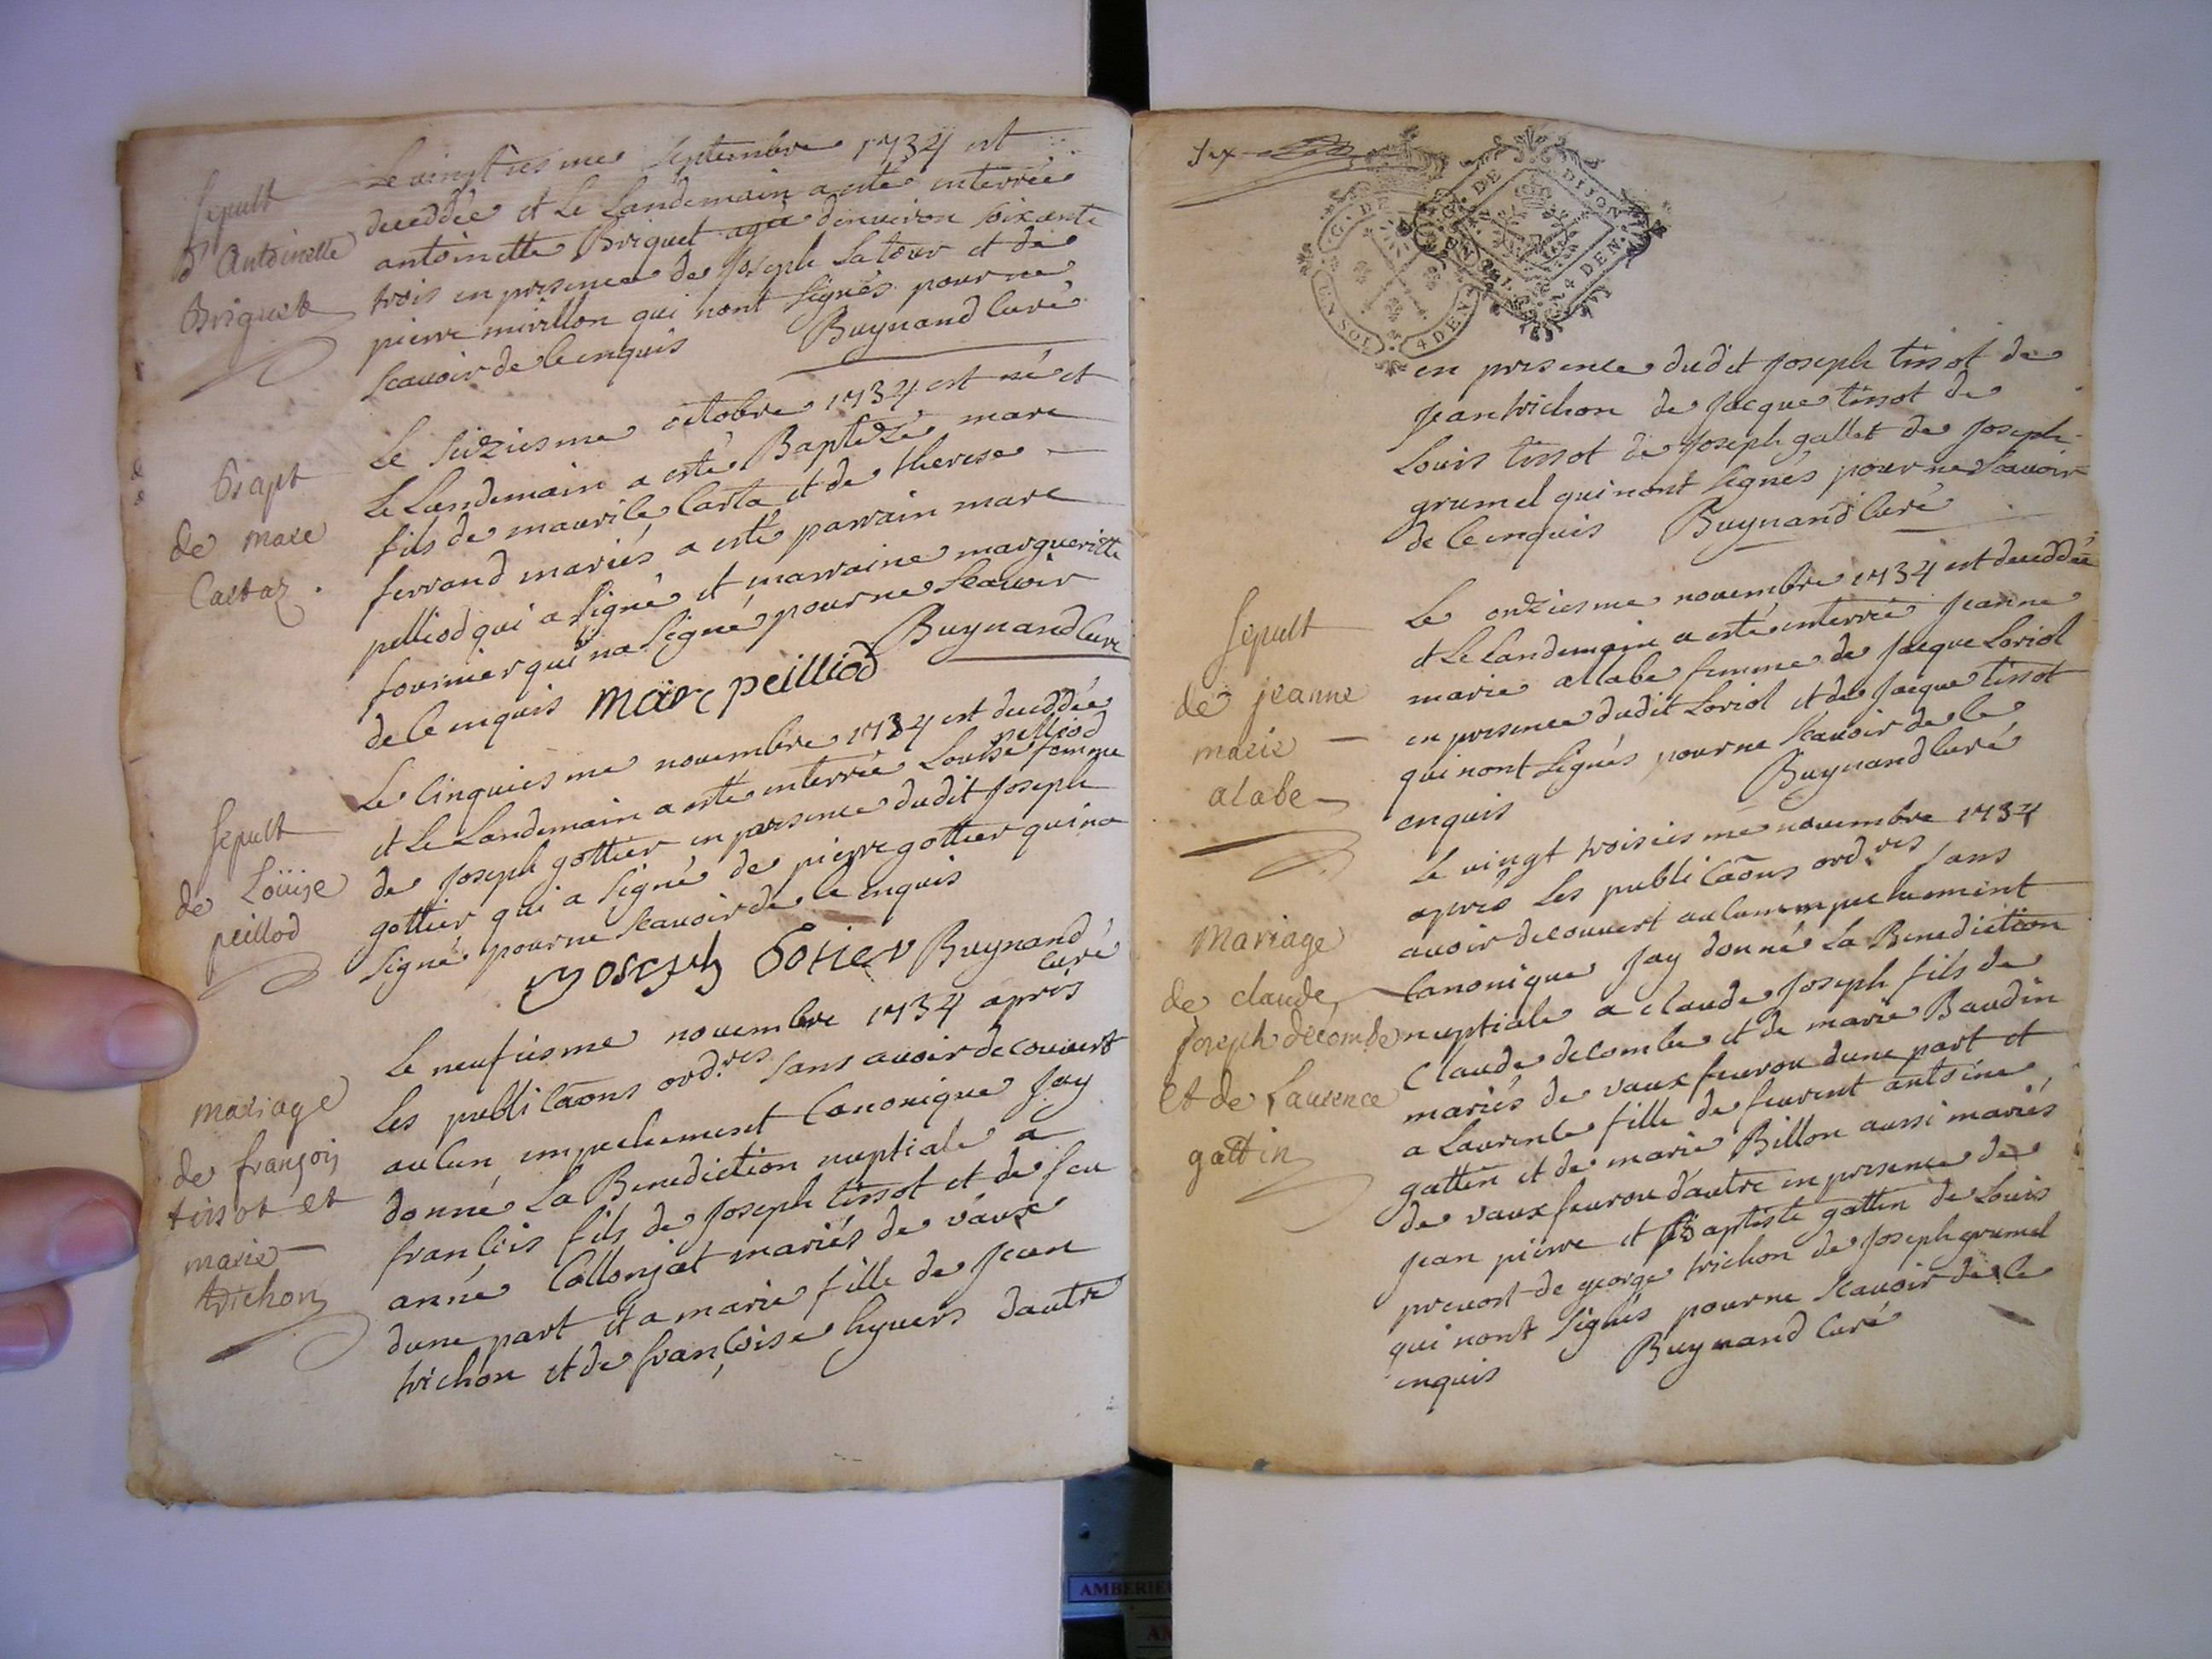 Sepult
d'Antoinette
Briguet
Le vingtiesme septembre 1734 est
deceddée et le landemain a esté enterrée
antoinette Briguet agée denviron soixante
trois en presence de Joseph Latour et de
pierre mirillon qui nont signés pour ne
scauoir de ce enquis Buynand Curé
Bapt
de marc
Castaz
Le seiziesme octobre 1734 est né et
le landemain a esté Baptizé marc
fils de maurice Casta et de therese
ferrand mariés a esté parrain marc
pelliod qui a signé et marraine margueritte
fournier qui na signé pour ne scauoir
de ce enquis marc peilliod Buynand Curé
Sepult
de Loüise
peillod
Le cinquiesme nouembre 1734 est deceddée
et le landemain a esté enterrée Louise pelliod femme
de Joseph gottier en presence dudit Joseph
gottier qui a signé de pierre gottier qui na
signé pour ne scauoir de ce enquis
Joseph Gotier Buynand
curé
mariage
de françois
tissot et
marie
trichon
Le neufiesme nouembre 1734 apres
les publicaõns ord.res sans auoir decouuert
aucun empechement canonique Jay
donné la Benediction nuptiale a
francois fils de Joseph tissot et de feu
anne Collonjat mariés de vaux
dune part et a marie fille de Jean
trichon et de françoise hyuers dautre
Sex
G. DE DIJON
UN SOL 4 DEN
en presence dudit Joseph tissot de
Jean trichon de Jacque tissot de
Louis tissot de Joseph gallet de Joseph
grumel qui nont signés pour ne scauoir
de ce enquis Buynand Curé
Sepult
de jeanne
marie
alabe
Le onziesme nouembre 1734 est deceddée
et le landemain a esté enterrée Jeanne
marie allabe femme de Jacque Loriol
en presence dudit Loriol et de Jacque tissot
qui nont signés pour ne scauoir de ce
enquis Buynand Curé
Mariage
de claude
joseph decombe
et de Laurence
gattin
Le vingt troisiesme nouembre 1734
aprés les publicaõns ord.res sans
auoir decouuert aucun empechement
canonique Jay donné la Benediction
nuptiale a claude Joseph fils de
Claude decombe et de marie Baudin
mariés de vaux feurou dune part et
a Laurence fille de feurent antoine
gattin et de marie Billon aussi mariés
de vaux feurou dautre en presence de
Jean pierre et Baptiste gattin de Louis
preuost de george trichon de Joseph grumel
qui nont signés pour ne scauoir de ce
enquis Buynand Curé
AMBERIEU